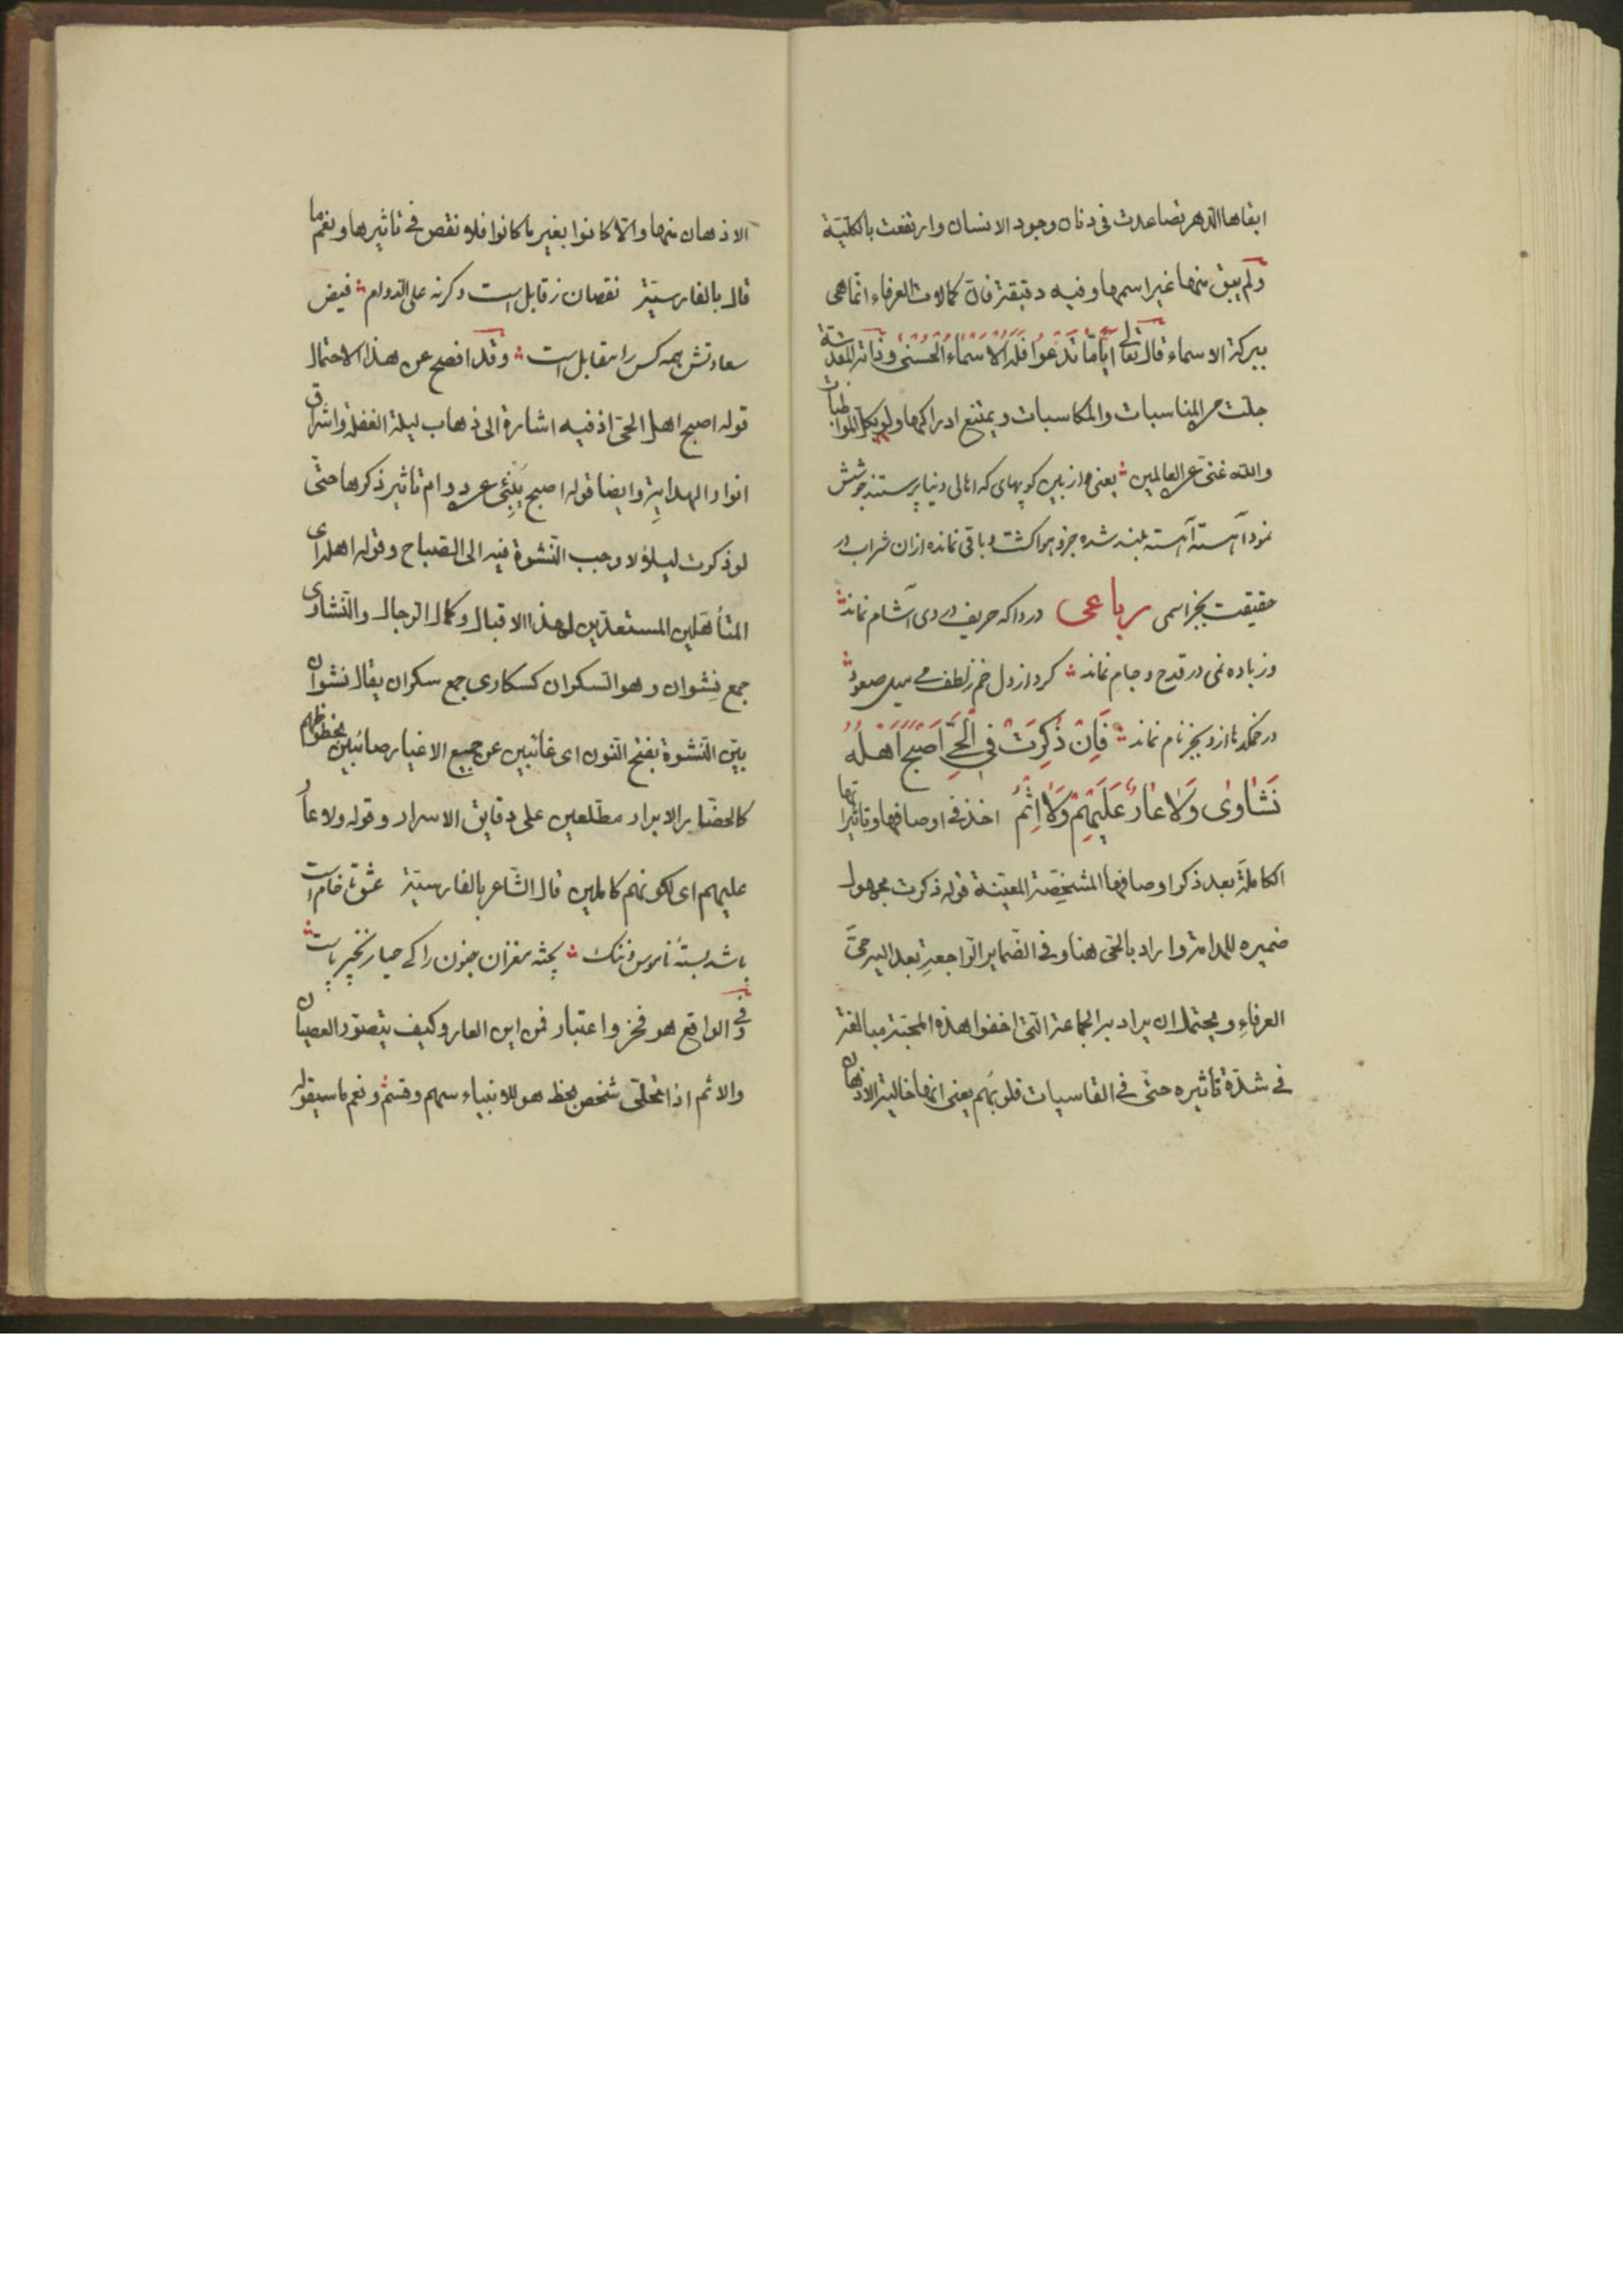 ابقاها الدهر تصاعدت فی دنان وجود الانسان وارتفعت بالکلیّة
ولم یبق منها غیر اسمها وفیه دقیقة فانّ کمالات العرفاء انّما هی
ببرکة الاسماء قال تعالی ایّاما تدعوا فله الاسماء الحسنی وذاته المقدسة
جلّت من المناسبات والمکاسبات ویمتنع ادراکها ولو بکل المواظبات
والله غنیّ عن العالمین یعنی از بین کوپهای که اهالی دنیا پرستند جوشش
نمود آهسته آهسته بلند شده جزو هوا کشت و باقی نمانده ازان شراب در
حقیقت بجز اسمی رباعی دردا که حریف دردی آشام نماند
وز باده نمی در قدح و جام نماند کرد از دل خم زلطف می میل صعود
در خمکدها ازو بجز نام نماند فَاِنْ ذُکِرَتْ فِی الْحَیِّ اَصْبَحَ اَهْلُهُ
نَشَاوٰی وَلَا عَارٌ عَلَیْهِمْ وَلَا اِثْمُ اخذ فی اوصافها وتاثیراتها
الکاملة بعد ذکر اوصافها المشخّصة المعیّنة قوله ذکرت مجهول
ضمیره للمدامة واراد بالحیّ هنا وفی الضّمایر الرّاجعةِ بعد الیه حیَّ
العرفاءِ ویحتمل ان یراد به الجماعة التی اخفوا هذه المحبّة مبالغة
فی شدّة تاثیره حتّی فی القاسیات قلوبهم یعنی انها خالیة الاذهان
الاذهان منها والّا کانوا بغیر ما کانوا فلا نقص فی تاثیرها ونعم ما
قال بالفارسیّة نقصان ز قابل است وکرنه علی الدوام فیض
سعادتش همه کس را مقابل است وقد افصح عن هذا الاحتمال
قوله اصبح اهل الحیّ اذ فیه اشارة الی ذهاب لیلة الغفلة واشراق
انوار الهدایةِ وایضا قوله اصبح یُنْبِئُ عن دوام تاثیر ذکرها حتّی
لو ذکرت لیلاً لاوجب النّشوة فیه الی الصّباح وقوله اهله ای
المتأهّلین المستعدّین لهذا الاقبال وکمال الرجال والنّشاوی
جمع نشوان وهو السکران کسکاری جمع سکران یقال نشوان
بیّن النّشوة بفتح النون ای غائبین عن جمیع الاغیار صائبین بحظوظهم
کالحضّار الابرار مطّلعین علی دقایق الاسرار وقوله ولا عارٌ
علیهم ای لکونهم کاملین قال الشّاعر بالفارسیّة عشق تا خام است
باشد بستهٔ ناموس و ننک پخته مغزان جنون را کی حیا زنجیر پاست
وفی الواقع هو فخر واعتبار فمن این العار وکیف یتصوّر العصیان
والاثم اذا تحلّی شخص بحظ هو للانبیاء سهم وقسم ونعم ما سیقوله